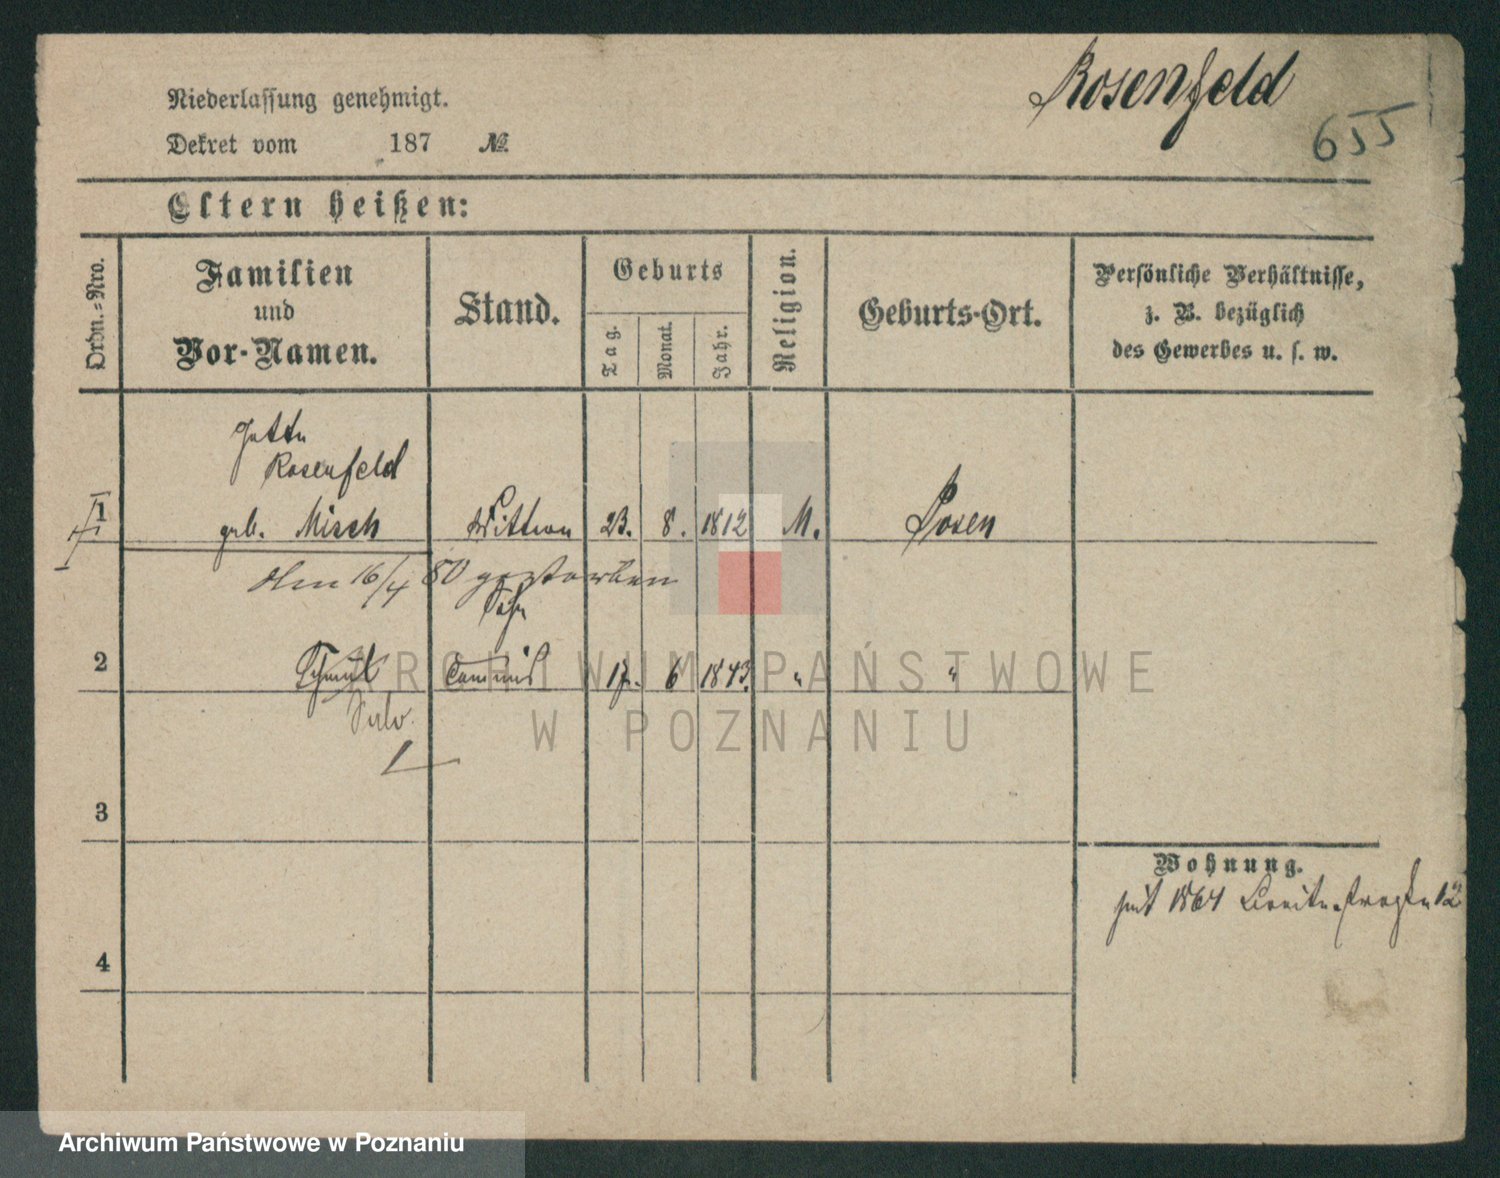 Rosenfeld
655
Niederlassung genehmigt.
Dekret vom 187 №
Eltern heißen:
Ordn.-Nro.
Familien
und
Vor-Namen.
Stand.
Geburts
Tag.
Monat.
Jahr.
Religion.
Geburts-Ort.
Persönliche Verhältnisse,
z. B. bezüglich
des Gewerbes u. s. w.
Jette
Rosenfeld
1 geb. Misch Wittwe 23. 8. 1812 M. Posen
den 16/4 80 gestorben
Sohn
2 Schmul Commis 17. 6 1843. " "
3
Wohnung.
seit 1864 Breitestraße 12
4
ARCHIWUM PAŃSTWOWE
W POZNANIU
Archiwum Państwowe w Poznaniu